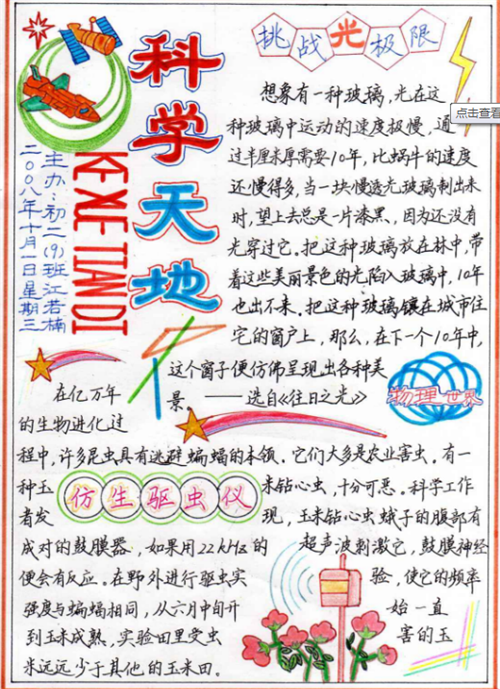 科学天地
KE XUE TIAN DI
主办：初二(9)班江若楠
二00八年十月一日星期三
挑战光极限
想象有一种玻璃，光在这
点击查看
种玻璃中运动的速度极慢，通
过半厘米厚需要10年，比蜗牛的速度
还慢得多，当一块慢透光玻璃制出来
时，望上去总是一片漆黑，因为还没有
光穿过它。把这种玻璃放在林中，带
着这些美丽景色的光陷入玻璃中，10年
也出不来。把这种玻璃镶在城市住
宅的窗户上，那么，在下一个10年中，
这个窗子便仿佛呈现出各种美
景 ——选自《往日之光》
物理世界
在亿万年
的生物进化过
程中，许多昆虫具有逃避蝙蝠的本领。它们大多是农业害虫，有一
种玉米钻心虫，十分可恶。科学工作
仿生驱虫仪
者发现，玉米钻心虫蛾子的腹部有
成对的鼓膜器，如果用22kHz的超声波刺激它，鼓膜神经
便会有反应。在野外进行驱虫实验，使它的频率
强度与蝙蝠相同，从六月中旬开始一直
到玉米成熟，实验田里受虫害的玉
米远远少于其他的玉米田。